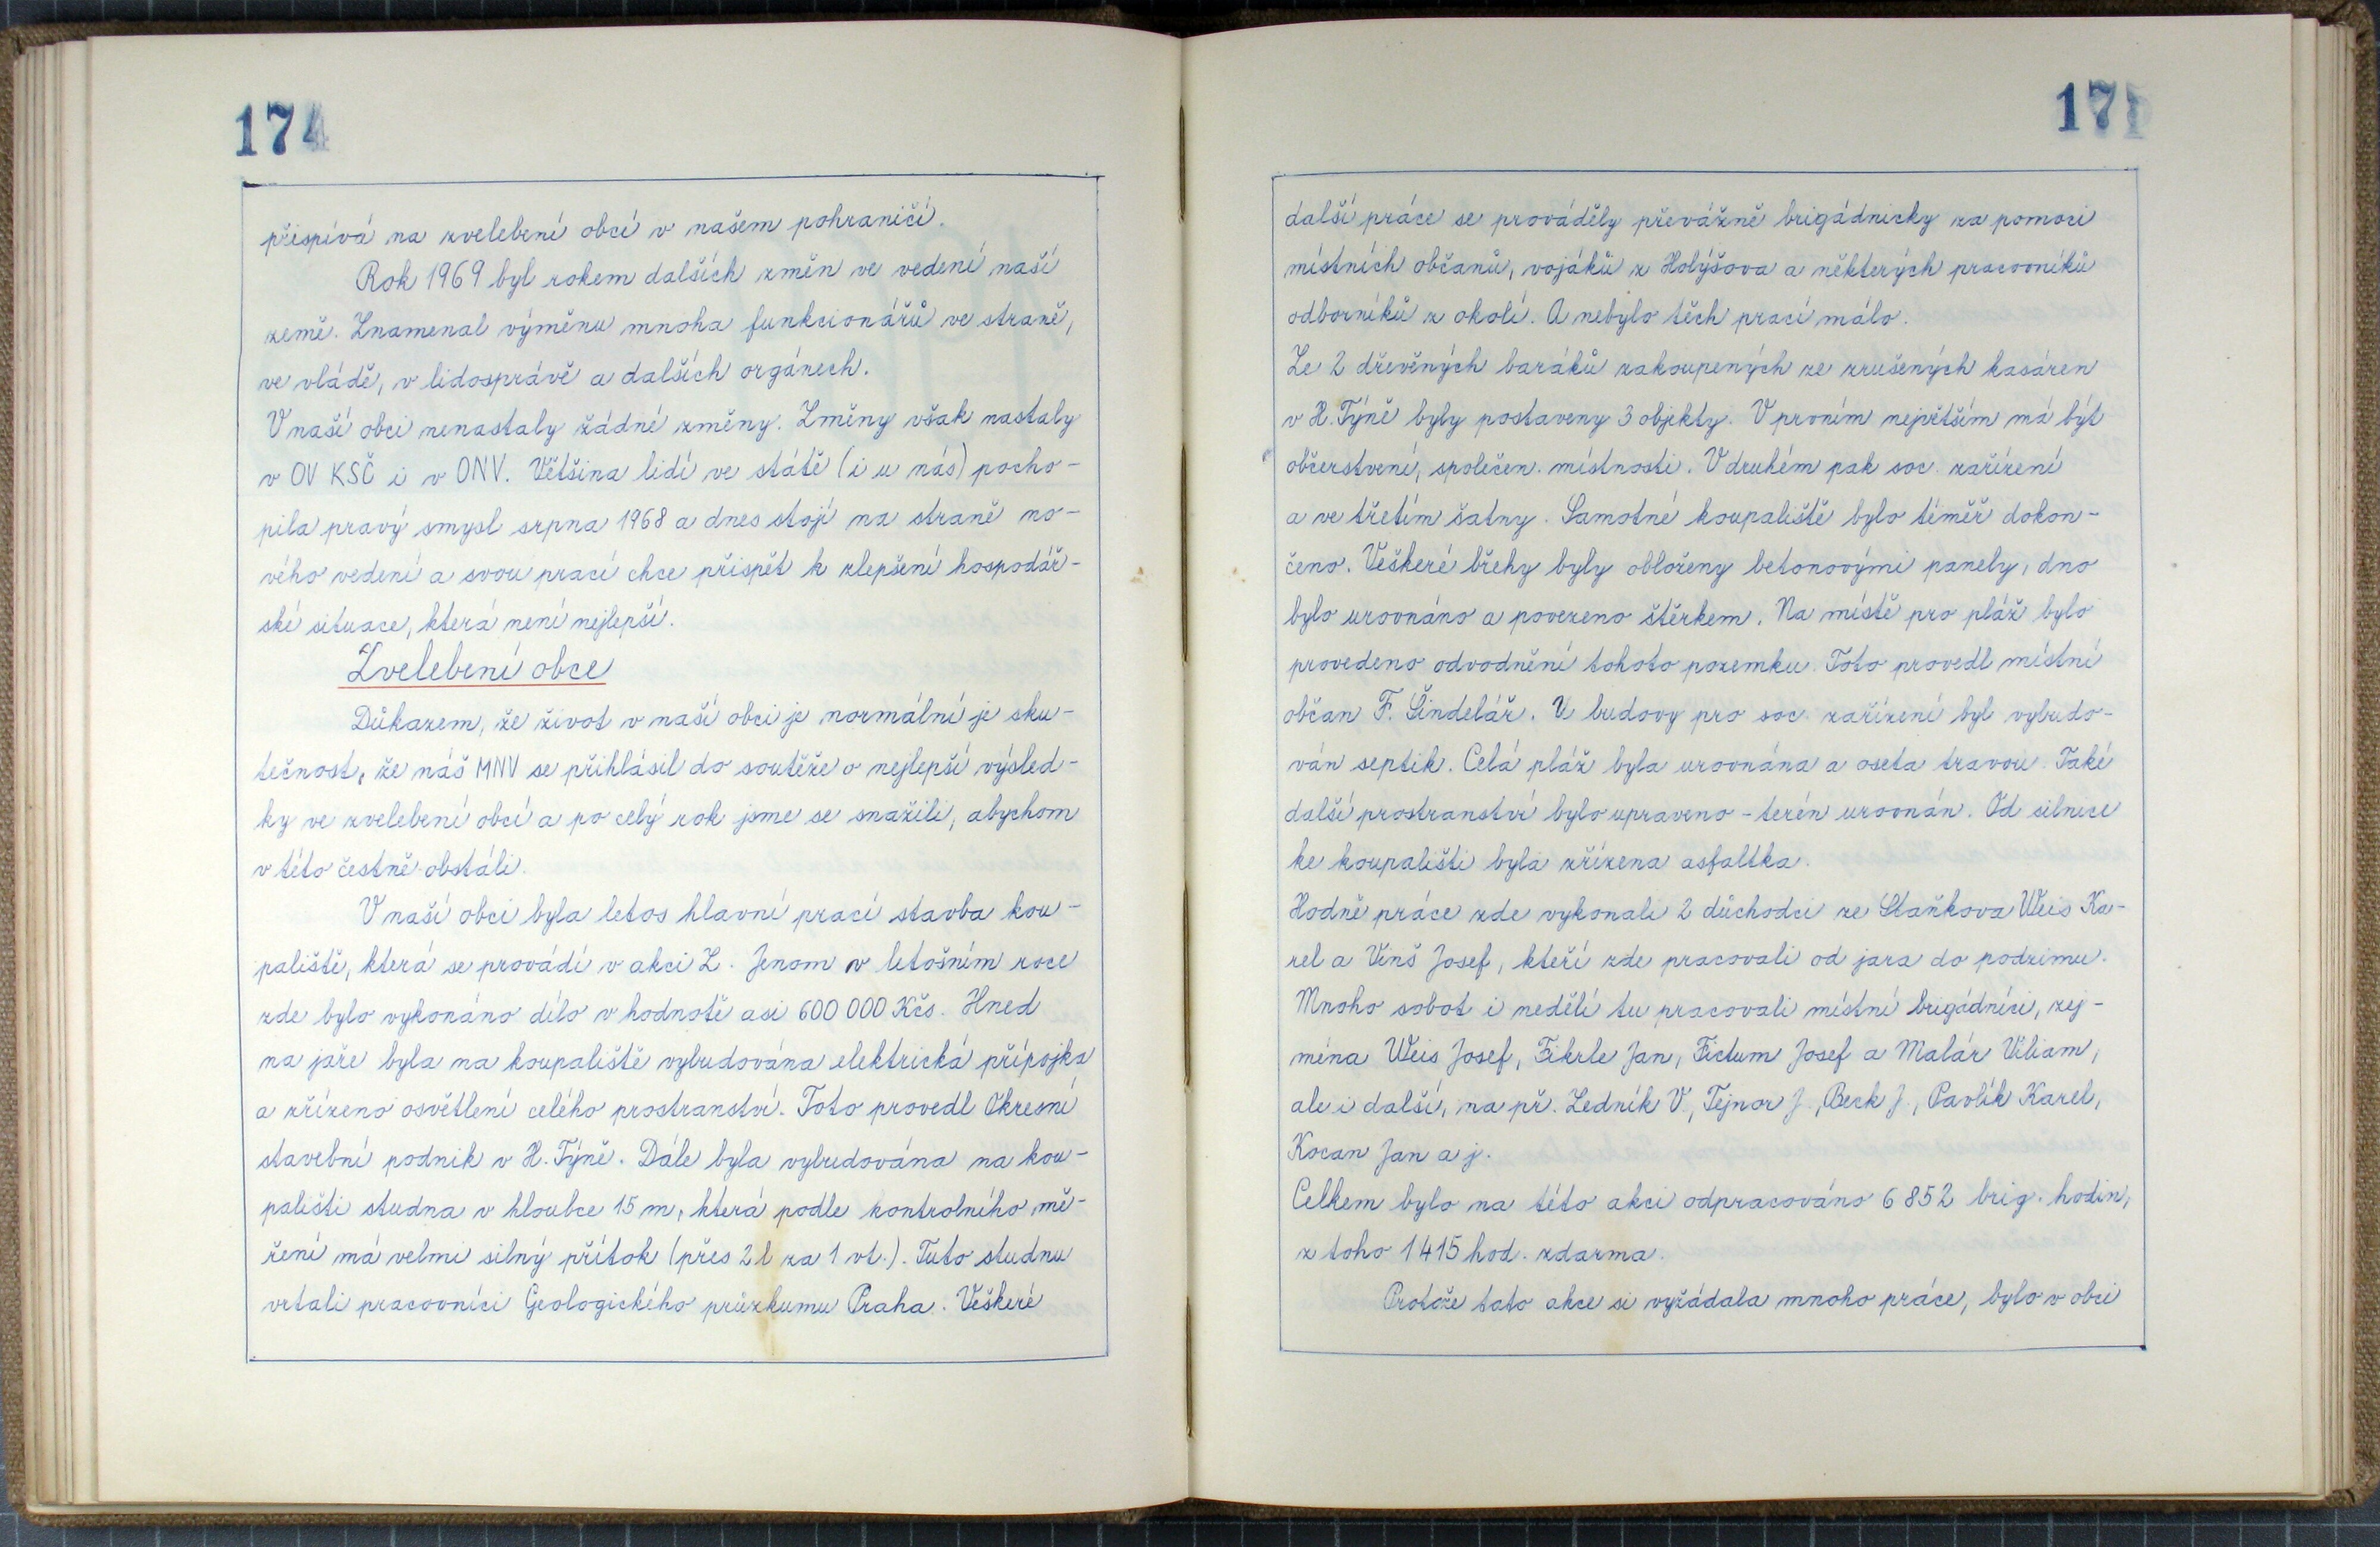 174
přispívá na zvelebení obcí v našem pohraničí.
Rok 1969 byl rokem dalších změn ve vedení naší
země. Znamenal výměnu mnoha funkcionářů ve straně,
ve vládě, v lidosprávě a dalších orgánech.
V naší obci nenastaly žádné změny. Změny však nastaly
v OV KSČ i v ONV. Většina lidí ve státě (i u nás) pocho-
pila pravý smysl srpna 1968 a dnes stojí na straně no-
vého vedení a svou prací chce přispět k zlepšení hospodář-
ské situace, která není nejlepší.
Zvelebení obce
Důkazem, že život v naší obci je normální je sku-
tečnost, že náš MNV se přihlásil do soutěže o nejlepší výsled-
ky ve zvelebení obcí a po celý rok jsme se snažili, abychom
v této čestně obstáli.
V naší obci byla letos hlavní prací stavba kou-
paliště, která se provádí v akci Z. Jenom v letošním roce
zde bylo vykonáno dílo v hodnotě asi 600 000 Kčs. Hned
na jaře byla na koupaliště vybudována elektrická přípojka
a zřízeno osvětlení celého prostranství. Toto provedl Okresní
stavební podnik v H. Týně. Dále byla vybudována na kou-
pališti studna v hloubce 15 m, která podle kontrolního mě-
ření má velmi silný přítok (přes 2 l za 1 vt.). Tuto studnu
vrtali pracovníci Geologického průzkumu Praha. Veškeré
další práce se prováděly převážně brigádnicky za pomoci
místních občanů, vojáků z Holýšova a některých pracovníků
odborníků z okolí. A nebylo těch prací málo.
Ze 2 dřevěných baráků zakoupených ze zrušených kasáren
v H. Týně byly postaveny 3 objekty. V prvním největším má být
občerstvení, společen. místnosti. V druhém pak soc. zařízení
a ve třetím šatny. Samotné koupaliště bylo téměř dokon-
čeno. Veškeré břehy byly obloženy betonovými panely, dno
bylo urovnáno a povezeno štěrkem. Na místě pro pláž bylo
provedeno odvodnění tohoto pozemku. Toto provedl místní
občan F. Šindelář. U budovy pro soc. zařízení byl vybudo-
ván septik. Celá pláž byla urovnána a oseta travou. Také
další prostranství bylo upraveno - terén urovnán. Od silnice
ke koupališti byla zřízena asfaltka.
Hodně práce zde vykonali 2 důchodci ze Staňkova Weis Ka-
rel a Vinš Josef, kteří zde pracovali od jara do podzimu.
Mnoho sobot i nedělí tu pracovali místní brigádníci, zej-
ména Weis Josef, Fikrle Jan, Fictum Josef a Malár Viliam,
ale i další, na př. Ledník V., Tejnor J., Beck J., Pavlík Karel,
Kocan Jan a j.
Celkem bylo na této akci odpracováno 6 852 brig. hodin,
z toho 1415 hod. zdarma.
Protože tato akce si vyžádala mnoho práce, bylo v obci